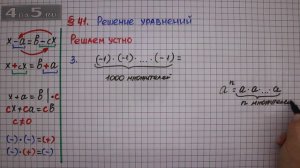 4 по 5.ru
§ 41. Решение уравнений
Решаем устно
x - a = b - cx
x + cx = b + a
x + a = b | · c
cx + ca = cb
c ≠ 0
(-) · (-) = (+)
(-) · (+) = (-)
3. (-1) · (-1) · ... · (-1) =
1000 множителей
aⁿ = a · a · ... · a
n множителей